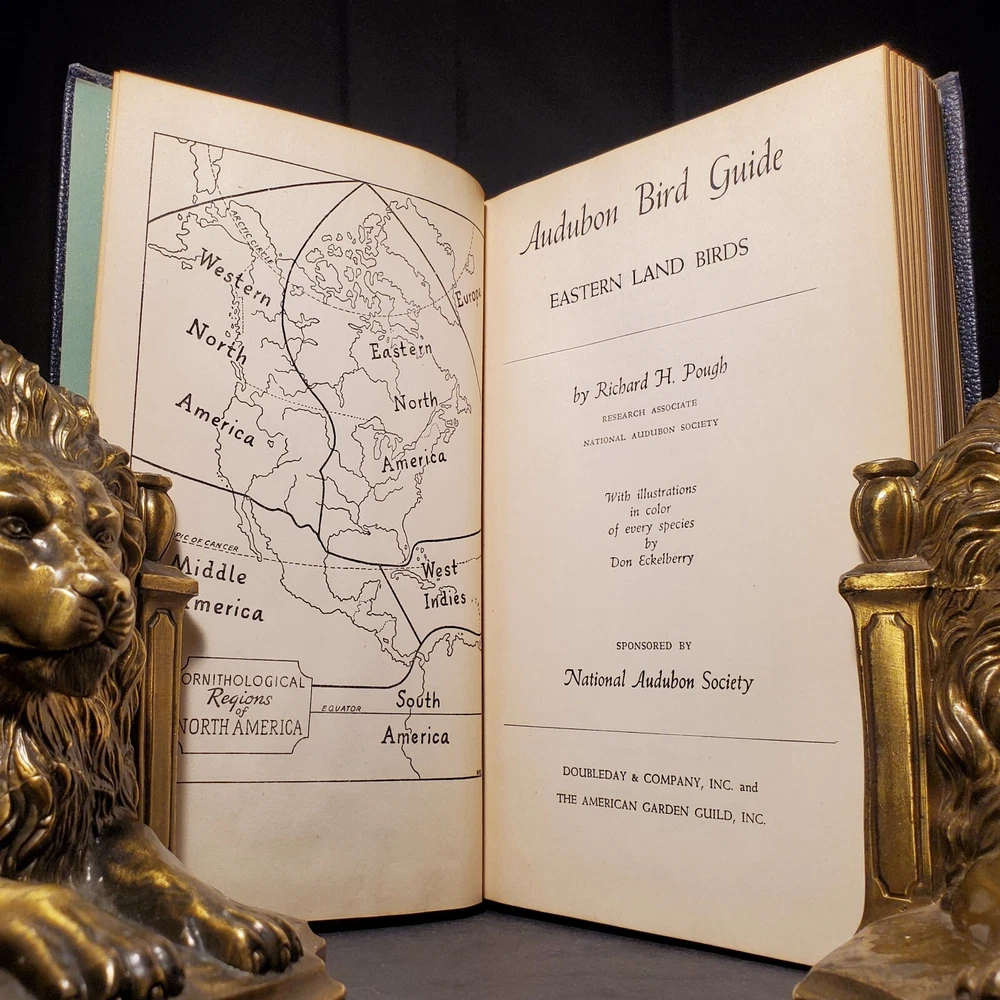 ARCTIC CIRCLE
Western
North
America
Europe
Eastern
North
America
TROPIC OF CANCER
Middle
America
West
Indies
ORNITHOLOGICAL
Regions
of
NORTH AMERICA
EQUATOR
South
America
Audubon Bird Guide
EASTERN LAND BIRDS
by Richard H. Pough
RESEARCH ASSOCIATE
NATIONAL AUDUBON SOCIETY
With illustrations
in color
of every species
by
Don Eckelberry
SPONSORED BY
National Audubon Society
DOUBLEDAY & COMPANY, INC. and
THE AMERICAN GARDEN GUILD, INC.